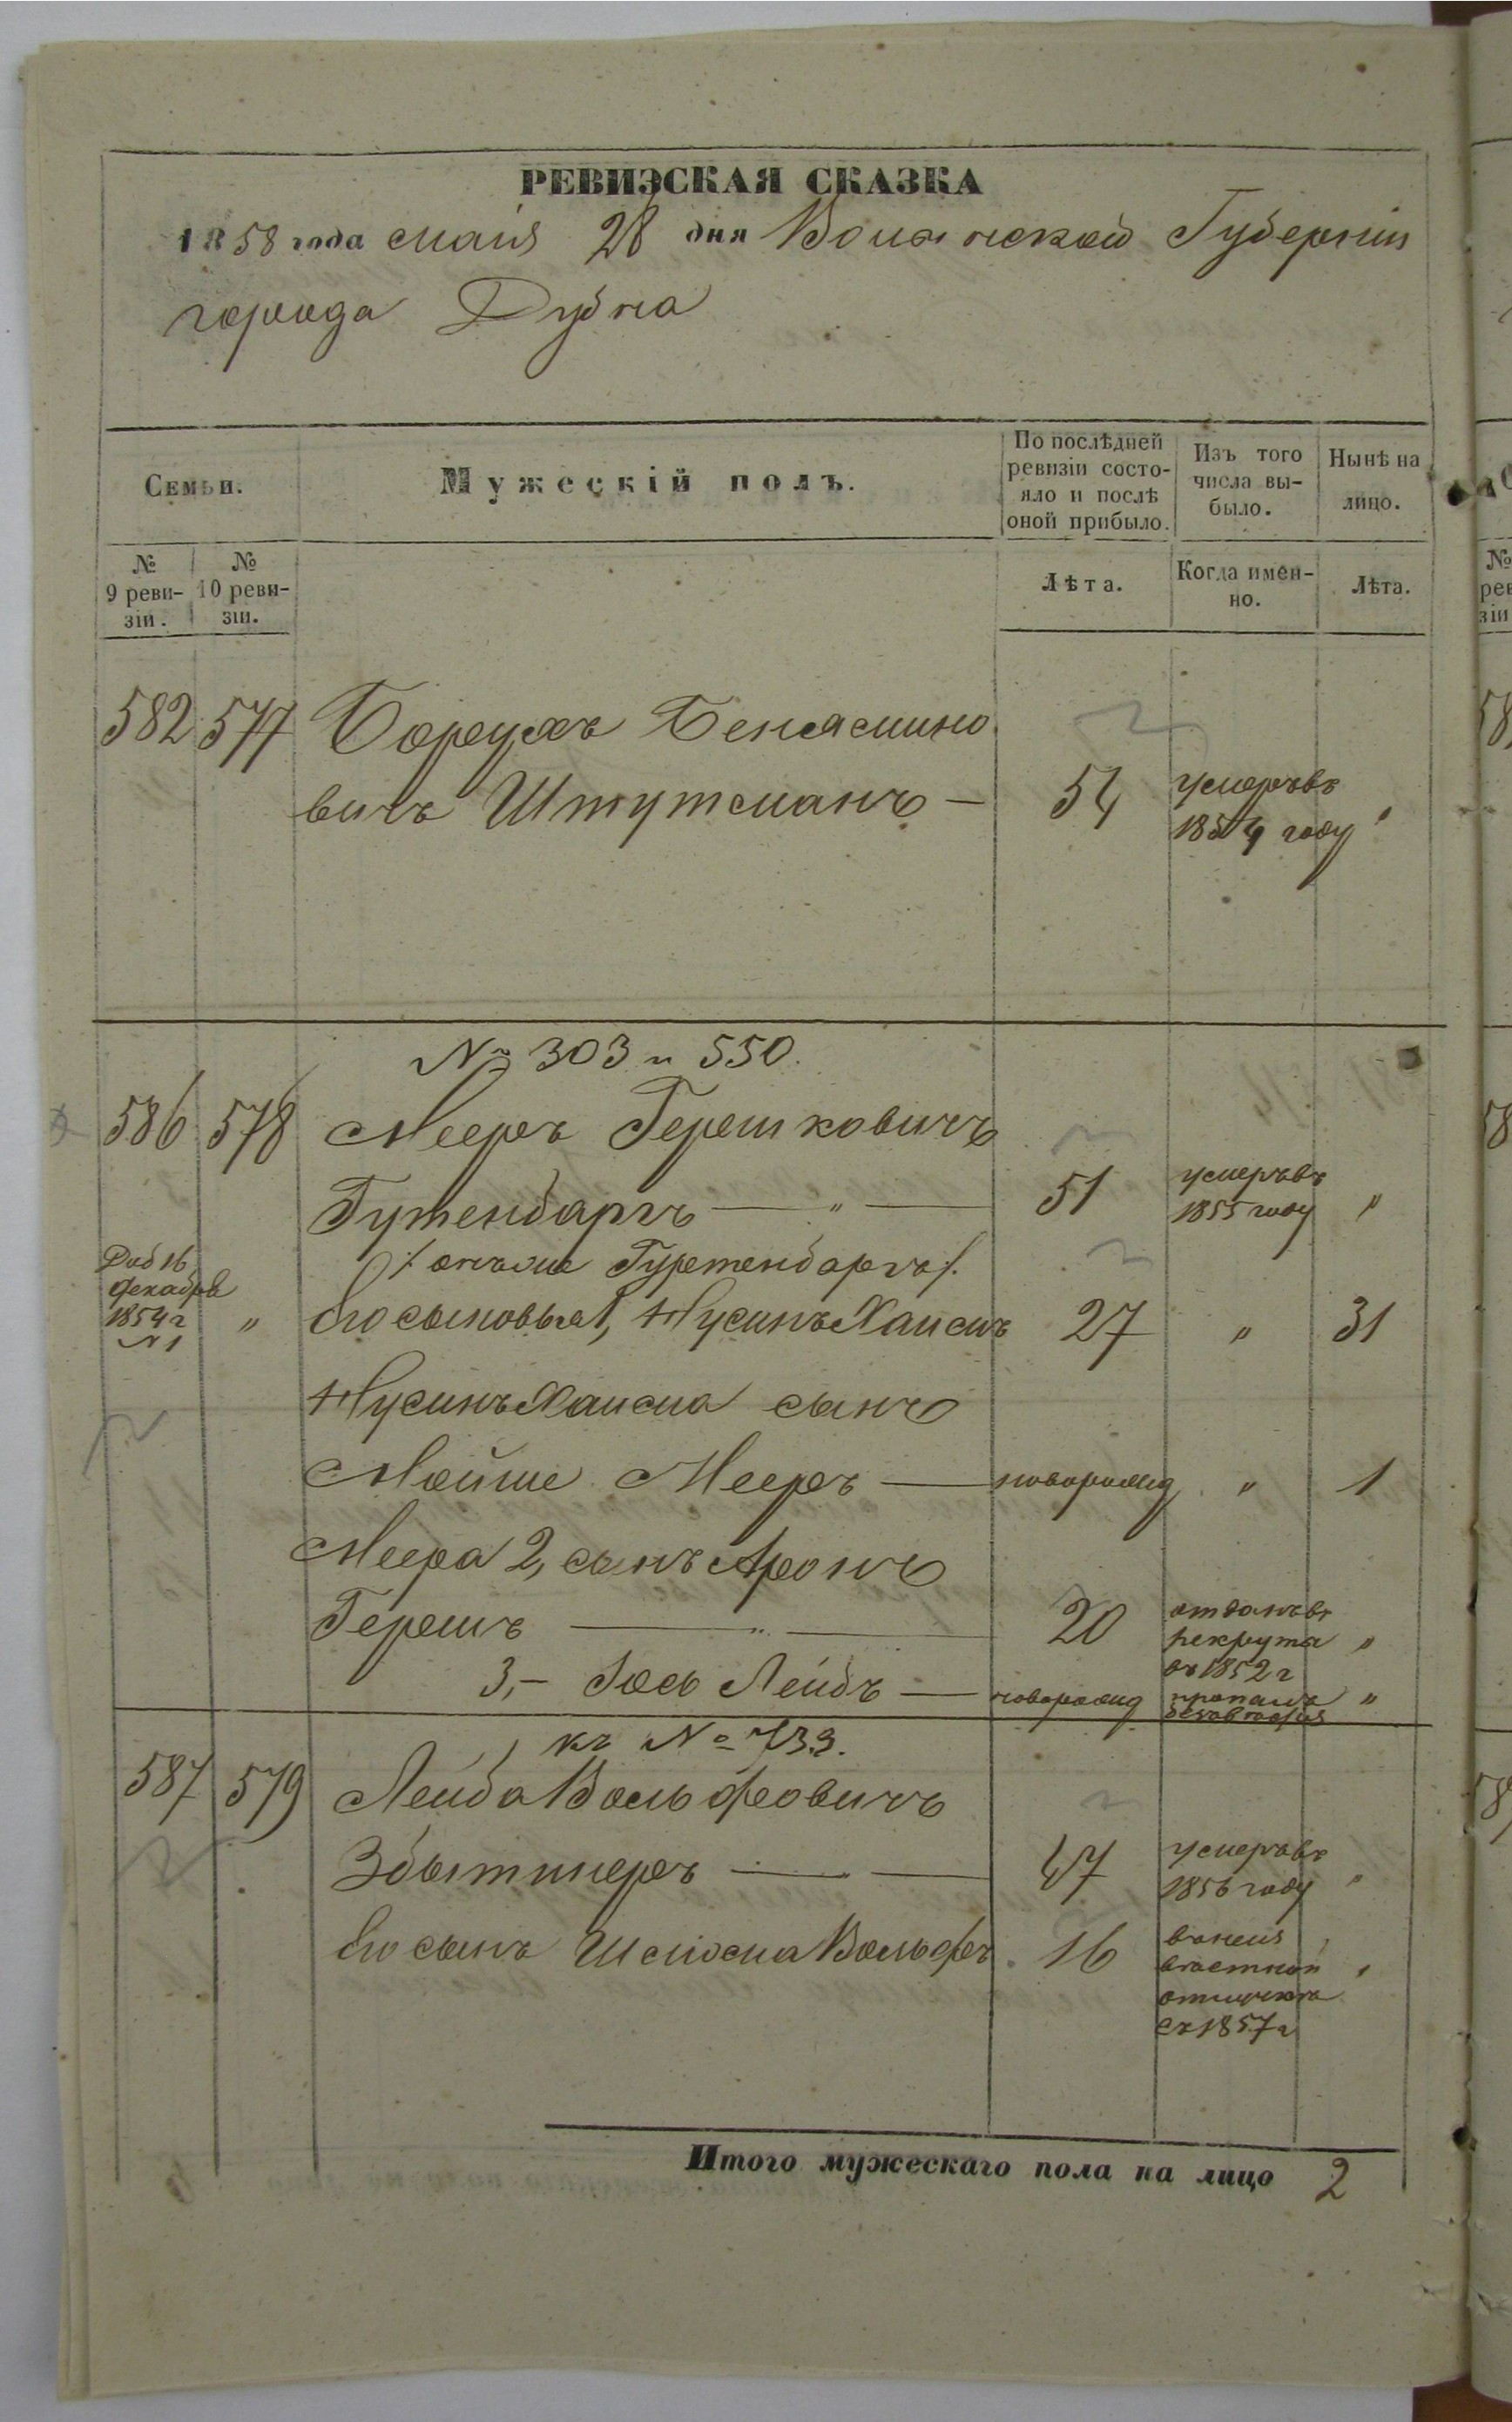 РЕВИЗСКАЯ СКАЗКА
1858 года маія 28 дня Волынской Губерніи
города Дубна
Семьи.
Мужескій полъ.
По послѣдней ревизіи состо-
яло и послѣ
оной прибыло.
Изъ того
числа вы-
было.
Нынѣ на
лицо.
№
9 реви-
зіи.
№
10 реви-
зіи.
Лѣта.
Когда имен-
но.
Лѣта.
582 577 Борухъ Беніямино
вичъ Штутманъ — 54 умеръ въ
1854 году "
№ 303 и 550.
586 578 Мееръ Гершковичъ
Гутенбаргъ — " — 51 умеръ въ
1855 году "
/: онъ же Гуртенбаргъ :/
Доб 16
декабря
1854 г
№ 1
" Его сыновья 1, Нусинъ Хаимъ 27 " 31
Нусинъ Хаима сынъ
Мойше Мееръ — новорожд " 1
Меера 2, сынъ Аронъ
Гершъ — " — 20 отданъ въ
рекруты "
въ 1852 г
3,— Іось Лейбъ — новорожд пропалъ "
къ № 733.
587 579 Лейба Вольфовичъ
Збытинеръ — 47 умеръ въ
1856 году "
Его сынъ Шлиома Вольфъ 16
отлучкѣ
съ 1857 г
Итого мужескаго пола на лицо 2